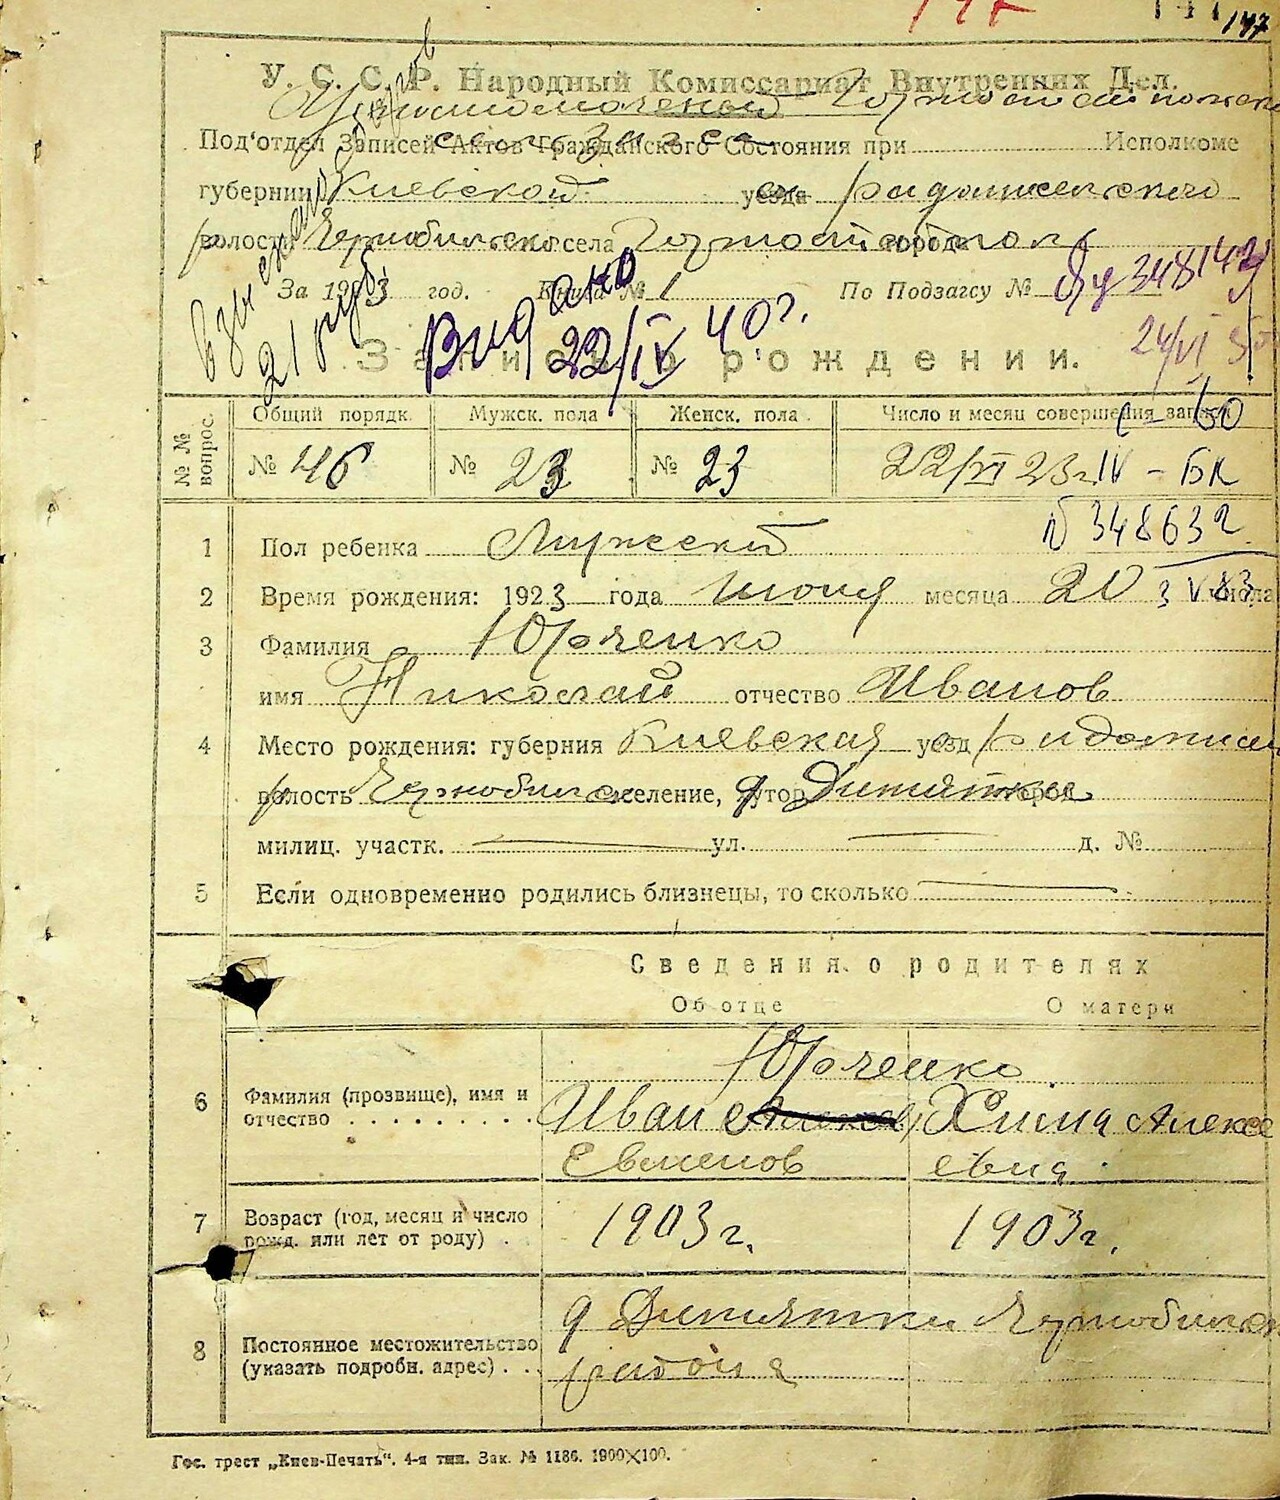 147
У. С. С. Р. Народный Комиссариат Внутренних Дел.
Уполномоченый
Под'отдел Записей Актов Гражданского Состояния при Исполкоме
губернии Киевской уезда радомысльского
волости Чернобильской села города
За 1923 год. Книга № 1 По Подзагсу №
Взыскано 21 руб
Видано 22/IV 40 г.
24/VI
Запись о рождении.
№ № вопрос.
Общий порядк. Мужск. пола Женск. пола Число и месяц совершения записи
№ 46 № 23 № 23 22/VI 23 г. IV - БК
№ 348632
1 Пол ребенка Мужский
2 Время рождения: 1923 года июня месяца 20 числа
3 Фамилия Юрченко
имя Николай отчество Иванов
4 Место рождения: губерния Киевская уезд
волость население, хутор Дитятки город
милиц. участк. ул. д. №
5 Если одновременно родились близнецы, то сколько
Сведения о родителях
Об отце О матери
Юрченко
6 Фамилия (прозвище), имя и отчество Иван Евменов Хима Алексеевна
7 Возраст (год, месяц и число рожд. или лет от роду) 1903 г. 1903 г.
8 Постоянное местожительство (указать подробн. адрес) д Дитятки
района
Гос. трест „Киев-Печать“. 4-я тип. Зак. № 1186. 1900×100.